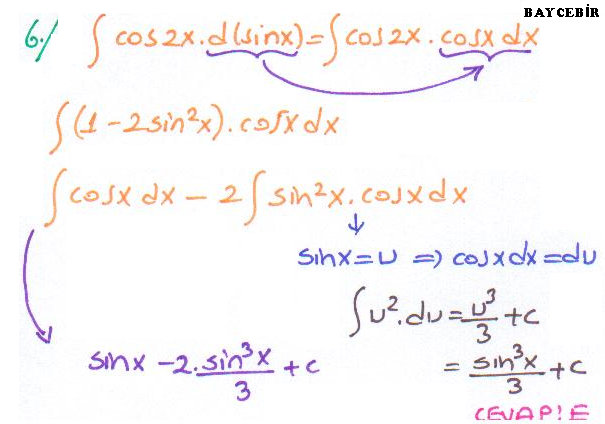 BAYCEBİR
6·/ ∫ cos2x.d(sinx)=∫cos2x.cosx dx
∫(1-2sin²x).cosx dx
∫cosx dx - 2∫sin²x.cosx dx
sinx=u ⇒ cosx dx=du
∫u².du=u³/3+c
sinx-2.sin³x/3+c
=sin³x/3+c
CEVAP!E